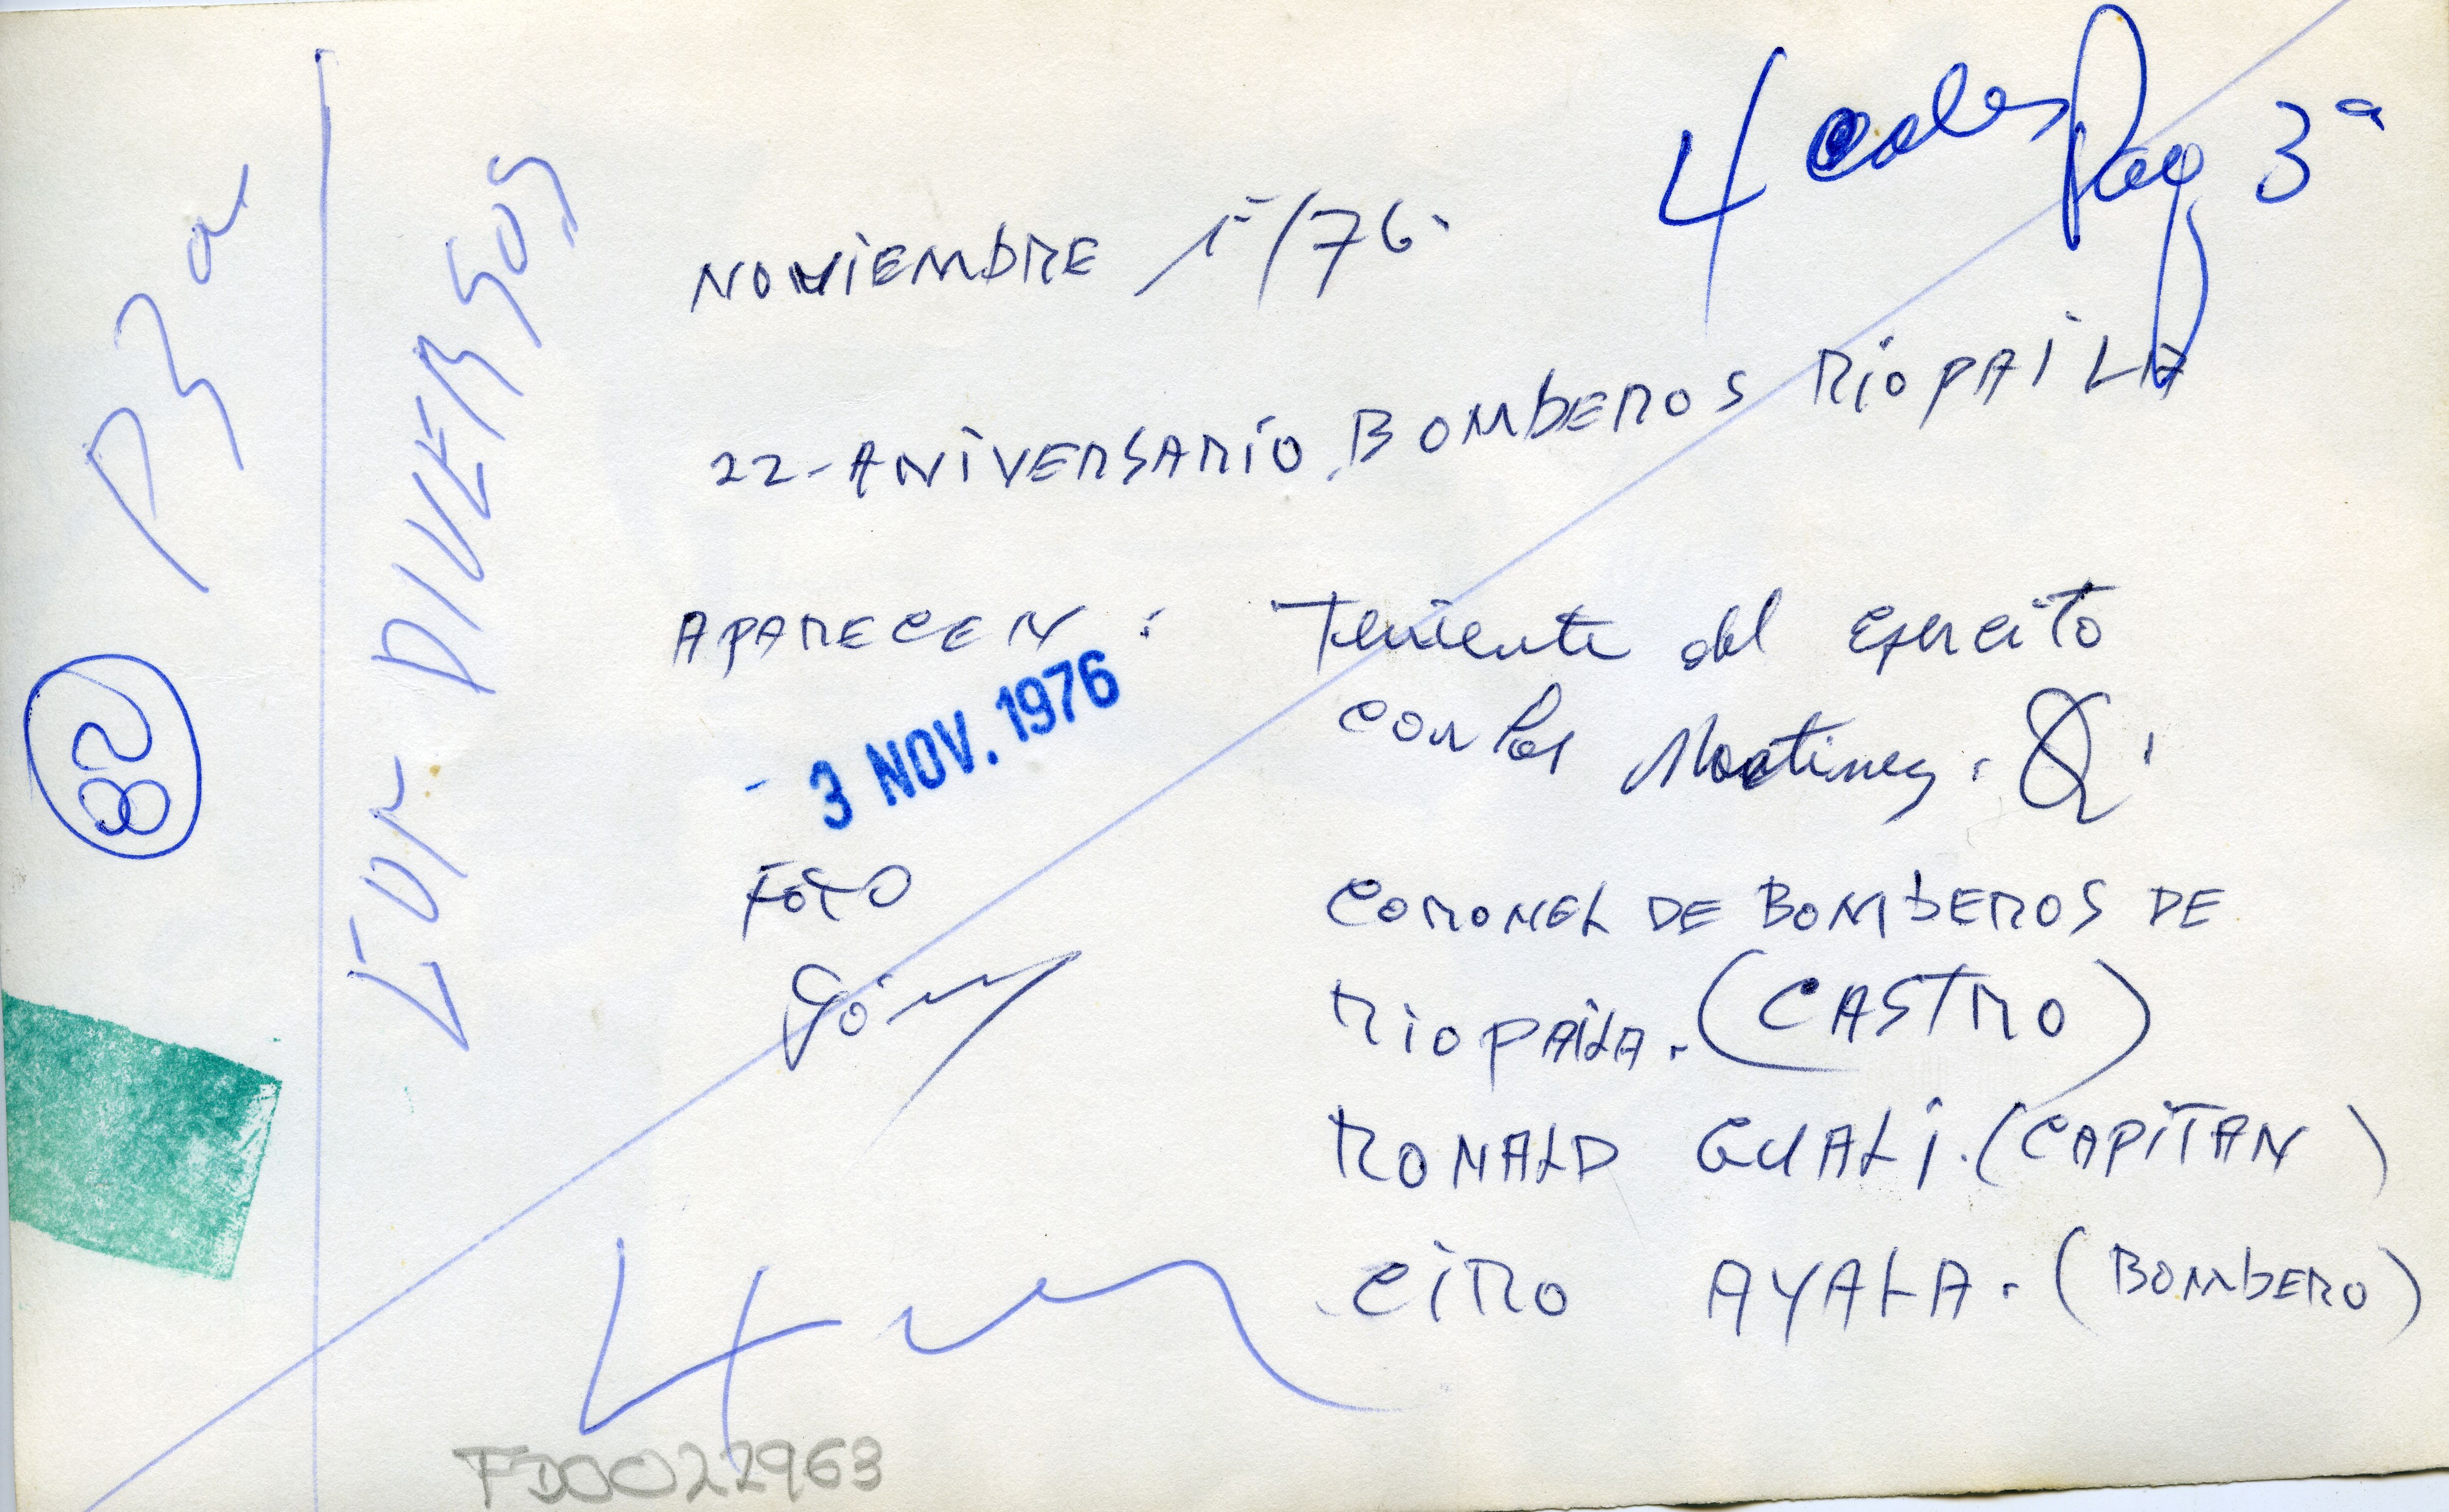 4 cols Pag 3ª
NOVIEMBRE 1º/76.
22-ANIVERSARIO BOMBEROS RIOPAILA
APARECEN: Teniente del Ejercito
Carlos Martinez. Q.
- 3 NOV. 1976
FOTO
CORONEL DE BOMBEROS DE
RIOPAILA. (CASTRO)
RONALD GUALI. (CAPITAN)
CIRO AYALA. (BOMBERO)
P 3a
DIVERSOS
82
4
FD0022963